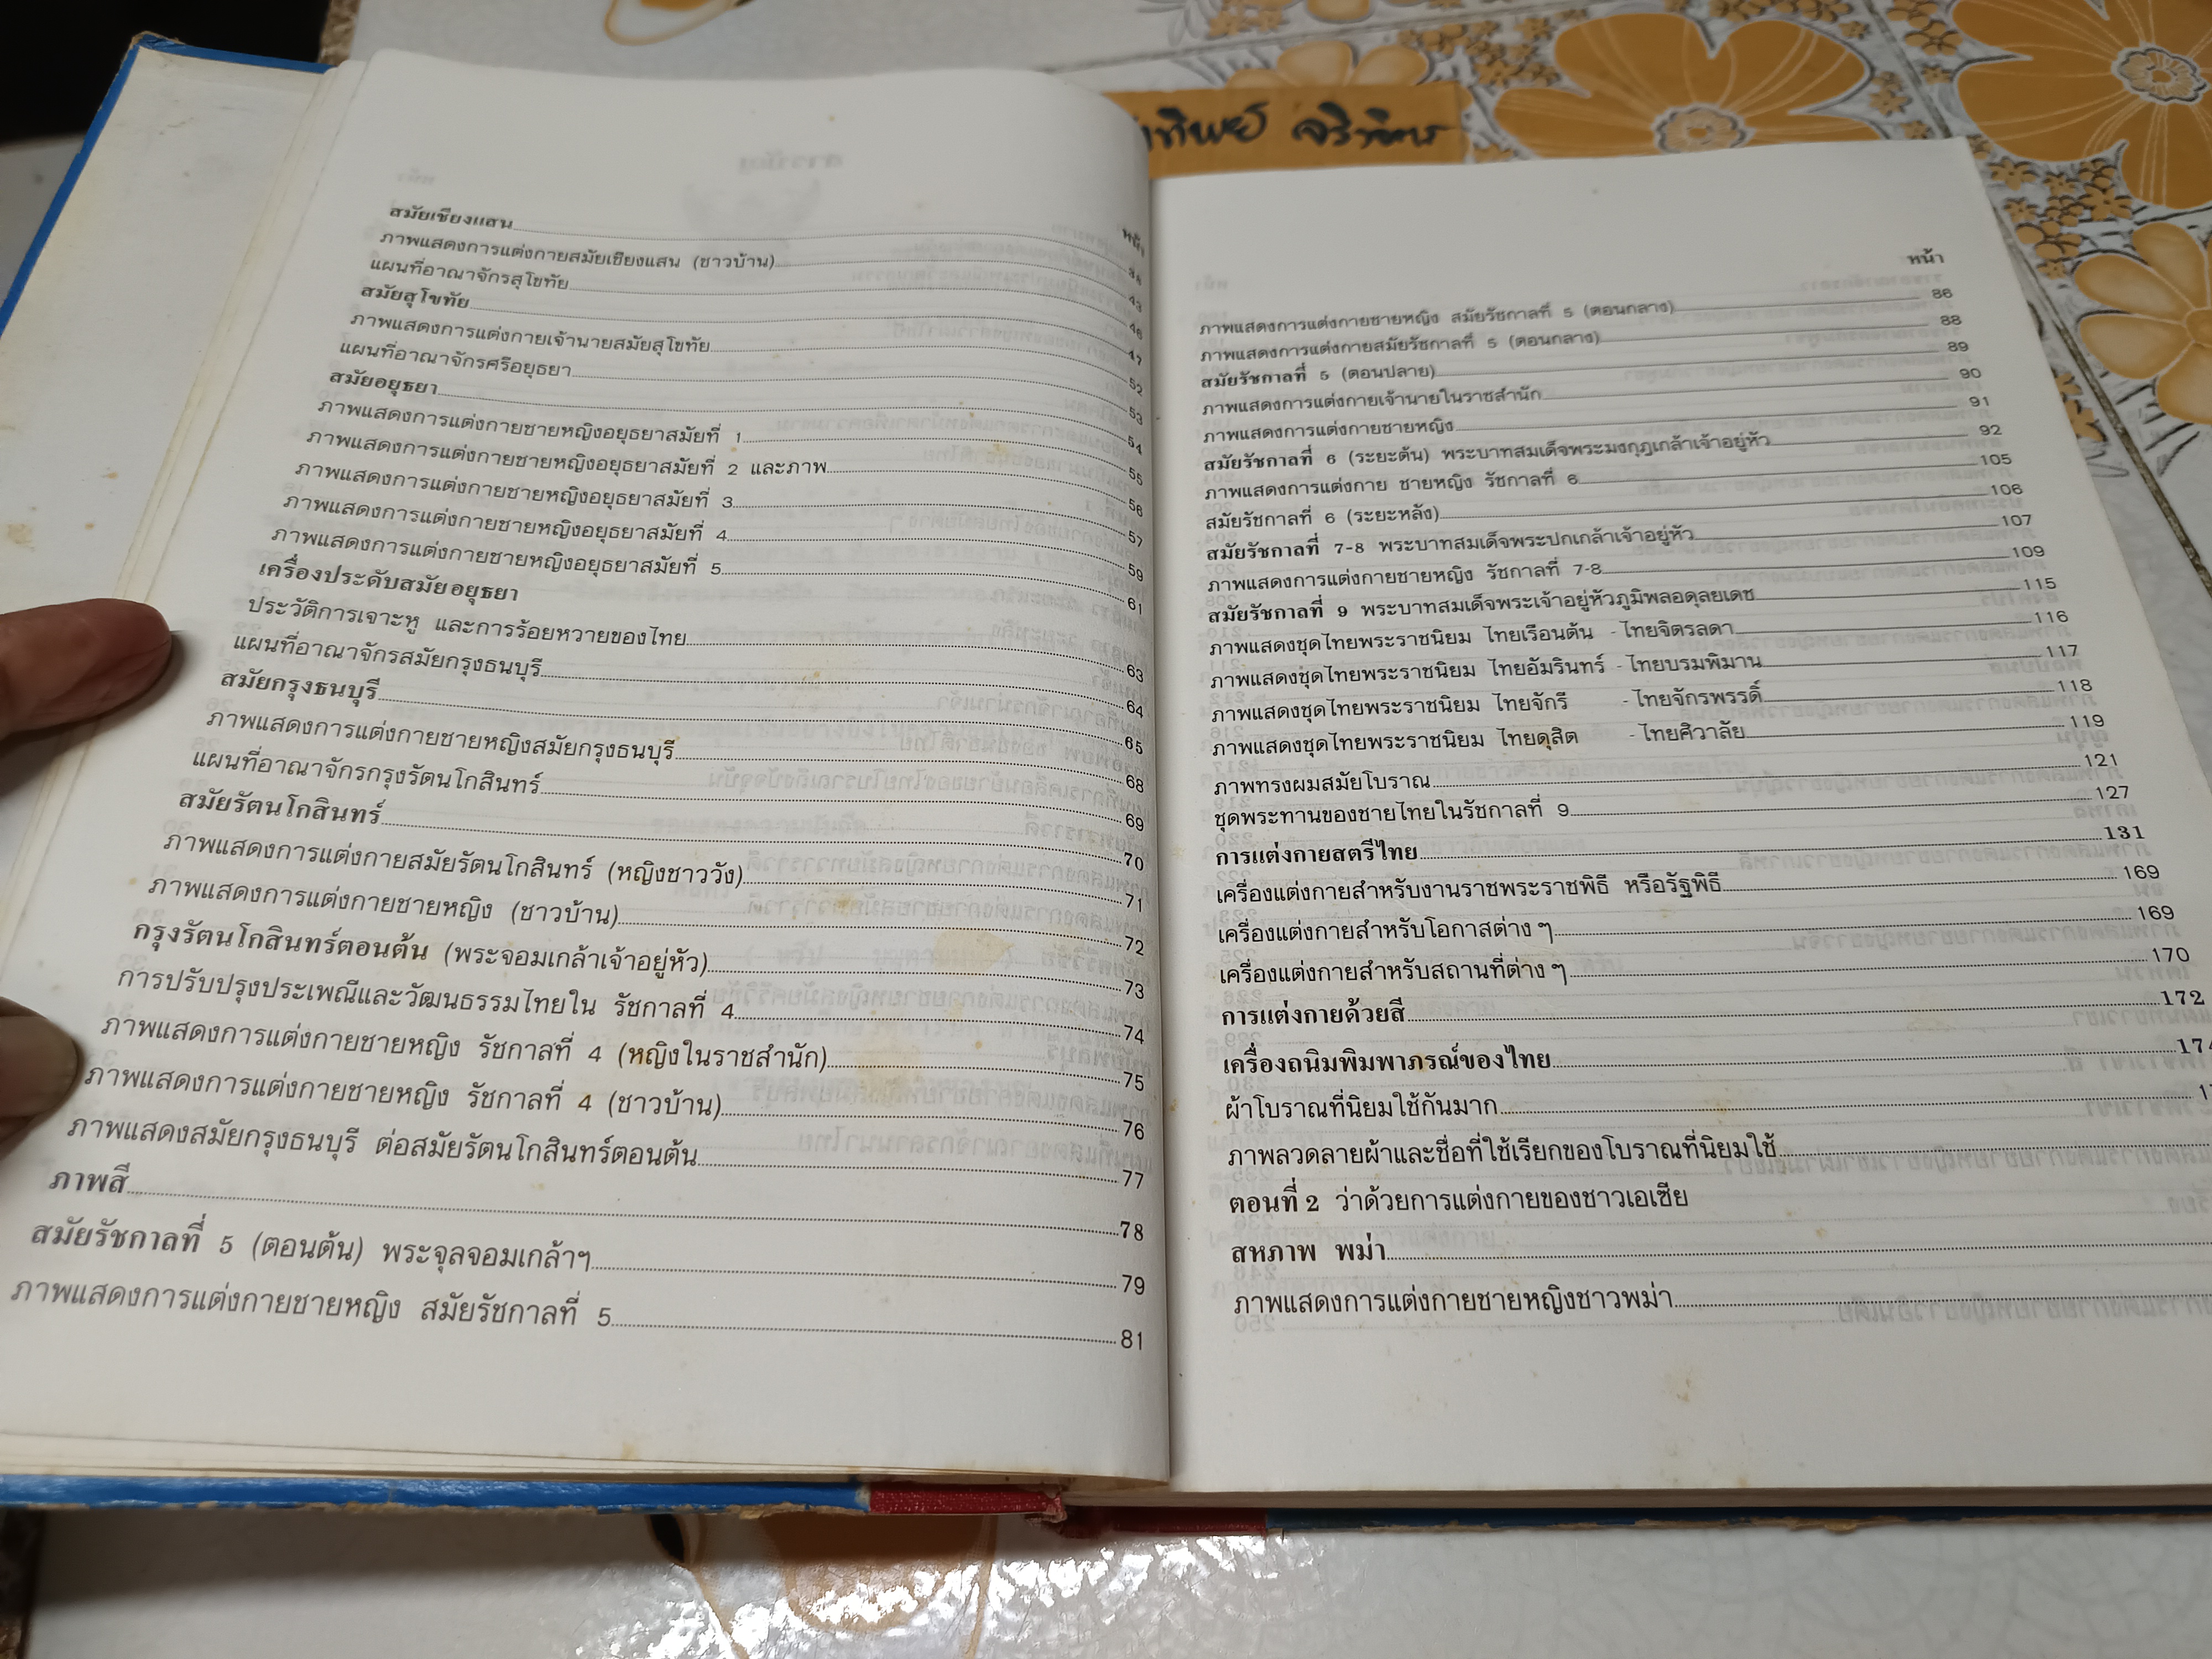 หน้า
สมัยเชียงแสน
ภาพแสดงการแต่งกายสมัยเชียงแสน (ชาวบ้าน)
แผนที่อาณาจักรสุโขทัย 43
สมัยสุโขทัย 46
ภาพแสดงการแต่งกายเจ้านายสมัยสุโขทัย 47
แผนที่อาณาจักรศรีอยุธยา 52
สมัยอยุธยา 53
ภาพแสดงการแต่งกายชายหญิงอยุธยาสมัยที่ 1 54
ภาพแสดงการแต่งกายชายหญิงอยุธยาสมัยที่ 2 และภาพ 55
ภาพแสดงการแต่งกายชายหญิงอยุธยาสมัยที่ 3 56
ภาพแสดงการแต่งกายชายหญิงอยุธยาสมัยที่ 4 57
ภาพแสดงการแต่งกายชายหญิงอยุธยาสมัยที่ 5 59
เครื่องประดับสมัยอยุธยา 61
ประวัติการเจาะหู และการร้อยหวายของไทย 63
แผนที่อาณาจักรสมัยกรุงธนบุรี 64
สมัยกรุงธนบุรี 65
ภาพแสดงการแต่งกายชายหญิงสมัยกรุงธนบุรี 68
แผนที่อาณาจักรกรุงรัตนโกสินทร์ 69
สมัยรัตนโกสินทร์ 70
ภาพแสดงการแต่งกายสมัยรัตนโกสินทร์ (หญิงชาววัง) 71
ภาพแสดงการแต่งกายชายหญิง (ชาวบ้าน) 72
กรุงรัตนโกสินทร์ตอนต้น (พระจอมเกล้าเจ้าอยู่หัว) 73
การปรับปรุงประเพณีและวัฒนธรรมไทยใน รัชกาลที่ 4 74
ภาพแสดงการแต่งกายชายหญิง รัชกาลที่ 4 (หญิงในราชสำนัก) 75
ภาพแสดงการแต่งกายชายหญิง รัชกาลที่ 4 (ชาวบ้าน) 76
ภาพแสดงสมัยกรุงธนบุรี ต่อสมัยรัตนโกสินทร์ตอนต้น 77
ภาพสี 78
สมัยรัชกาลที่ 5 (ตอนต้น) พระจุลจอมเกล้าฯ 79
ภาพแสดงการแต่งกายชายหญิง สมัยรัชกาลที่ 5 81
หน้า
ภาพแสดงการแต่งกายชายหญิง สมัยรัชกาลที่ 5 (ตอนกลาง) 86
ภาพแสดงการแต่งกายสมัยรัชกาลที่ 5 (ตอนกลาง) 88
สมัยรัชกาลที่ 5 (ตอนปลาย) 89
ภาพแสดงการแต่งกายเจ้านายในราชสำนัก 90
ภาพแสดงการแต่งกายชายหญิง 91
สมัยรัชกาลที่ 6 (ระยะต้น) พระบาทสมเด็จพระมงกุฎเกล้าเจ้าอยู่หัว 92
ภาพแสดงการแต่งกาย ชายหญิง รัชกาลที่ 6 105
สมัยรัชกาลที่ 6 (ระยะหลัง) 106
สมัยรัชกาลที่ 7-8 พระบาทสมเด็จพระปกเกล้าเจ้าอยู่หัว 107
ภาพแสดงการแต่งกายชายหญิง รัชกาลที่ 7-8 109
สมัยรัชกาลที่ 9 พระบาทสมเด็จพระเจ้าอยู่หัวภูมิพลอดุลยเดช 115
ภาพแสดงชุดไทยพระราชนิยม ไทยเรือนต้น - ไทยจิตรลดา 116
ภาพแสดงชุดไทยพระราชนิยม ไทยอัมรินทร์ - ไทยบรมพิมาน 117
ภาพแสดงชุดไทยพระราชนิยม ไทยจักรี - ไทยจักรพรรดิ์ 118
ภาพแสดงชุดไทยพระราชนิยม ไทยดุสิต - ไทยศิวาลัย 119
ภาพทรงผมสมัยโบราณ 121
ชุดพระทานของชายไทยในรัชกาลที่ 9 127
การแต่งกายสตรีไทย 131
เครื่องแต่งกายสำหรับงานราชพระราชพิธี หรือรัฐพิธี 169
เครื่องแต่งกายสำหรับโอกาสต่าง ๆ 169
เครื่องแต่งกายสำหรับสถานที่ต่าง ๆ 170
การแต่งกายด้วยสี 172
เครื่องถนิมพิมพาภรณ์ของไทย 174
ผ้าโบราณที่นิยมใช้กันมาก
ภาพลวดลายผ้าและชื่อที่ใช้เรียกของโบราณที่นิยมใช้
ตอนที่ 2 ว่าด้วยการแต่งกายของชาวเอเซีย
สหภาพ พม่า
ภาพแสดงการแต่งกายชายหญิงชาวพม่า